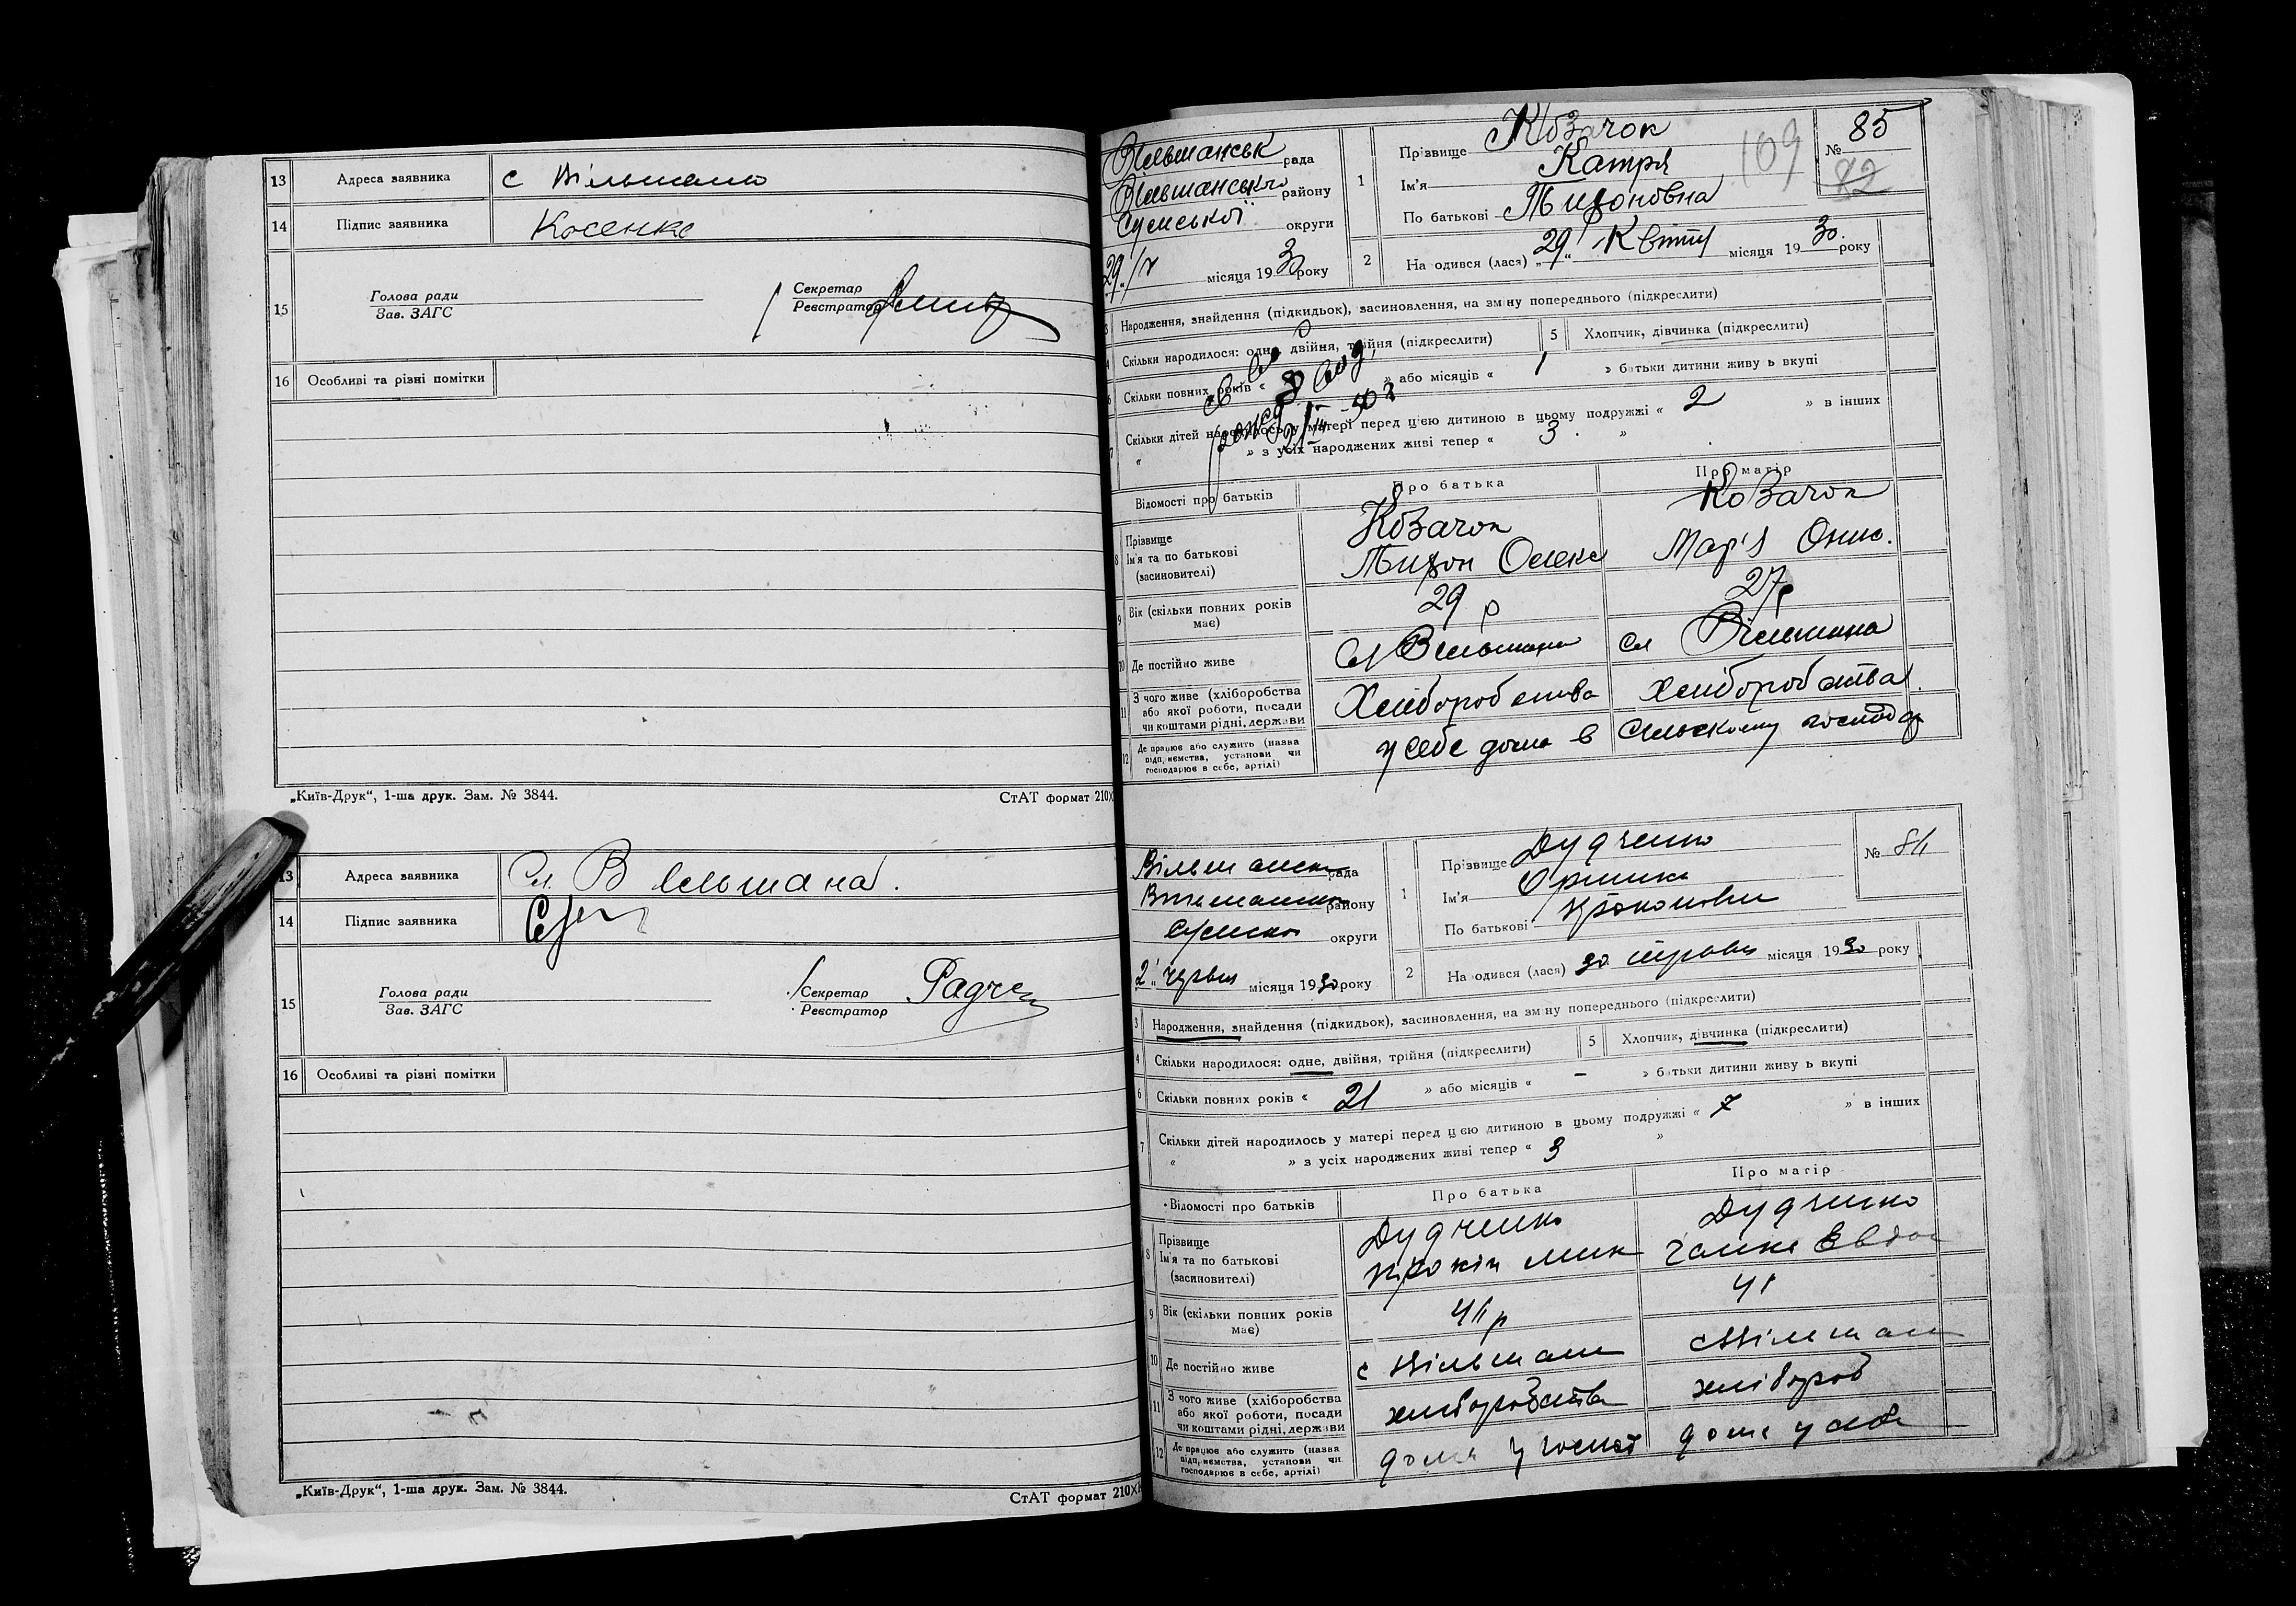 13 Адреса заявника с Вільшана
14 Підпис заявника Косенко
15 Голова ради
Зав. ЗАГС
Секретар
Реєстратор
16 Особливі та різні помітки
„Київ-Друк“, 1-ша друк. Зам. № 3844.
СтАТ формат 210Х
13 Адреса заявника Сл. Вільшана.
14 Підпис заявника
15 Голова ради
Зав. ЗАГС
Секретар
Реєстратор Радчен
16 Особливі та різні помітки
„Київ-Друк“, 1-ша друк. Зам. № 3844.
СтАТ формат 210Х
Вільшанськ рада
Вільшанського району
Сумської округи
29/ місяця 1930 року
1 Прізвище Козачок
Ім'я Катря
По батькові Тихоновна
109
№ 85
82
2 На одився (лася) „29“ Квітня місяця 1930. року
3 Народження, знайдення (підкидьок), засиновлення, на зміну попереднього (підкреслити)
4 Скільки народилося: одне, двійня, трійня (підкреслити)
5 Хлопчик, дівчинка (підкреслити)
6 Скільки повних років « 8 » або місяців « 1 » батьки дитини живу ь вкупі
7 Скільки дітей народилось у матері перед цією дитиною в цьому подружжі « 2 » в інших
« » з усіх народжених живі тепер « 3 »
Відомості про батьків Про батька Про матір
8 Прізвище Козачок Козачок
Ім'я та по батькові Тихон Олекс Мар'я Онис.
(засиновителі)
9 Вік (скільки повних років має) 29 р 27р
10 Де постійно живе Сл Вільшана сл Вільшана
11 З чого живе (хліборобства Хліборобства Хліборобства
або якої роботи, посади
чи коштами рідні, держави
12 Де працює або служить (назва у себе дома в Сільскому господар
підп,иємства, установи чи
господарює в себе, артілі)
Вільшанська рада
Вільшанська району
Сумська округи
2 червня місяця 1930 року
1 Прізвище Дудченко
Ім'я Оришка
По батькові Прокоповн
№ 86
2 На одився (лася) 30 травня місяця 1930 року
3 Народження, знайдення (підкидьок), засиновлення, на зміну попереднього (підкреслити)
4 Скільки народилося: одне, двійня, трійня (підкреслити)
5 Хлопчик, дівчинка (підкреслити)
6 Скільки повних років « 21 » або місяців « – » батьки дитини живу ь вкупі
7 Скільки дітей народилось у матері перед цією дитиною в цьому подружжі « 7 » в інших
« » з усіх народжених живі тепер « 3 »
Відомості про батьків Про батька Про матір
8 Прізвище Дудченко Дудченко
Ім'я та по батькові Прокіп Мик Ганна Евдок
(засиновителі)
9 Вік (скільки повних років має) 41 р 41
10 Де постійно живе с Вільшани с Вільшани
11 З чого живе (хліборобства хліборобства хлібороб
або якої роботи, посади
чи коштами рідні, держави
12 Де працює або служить (назва дома у госпо дома у себе
підп,иємства, установи чи
господарює в себе, артілі)